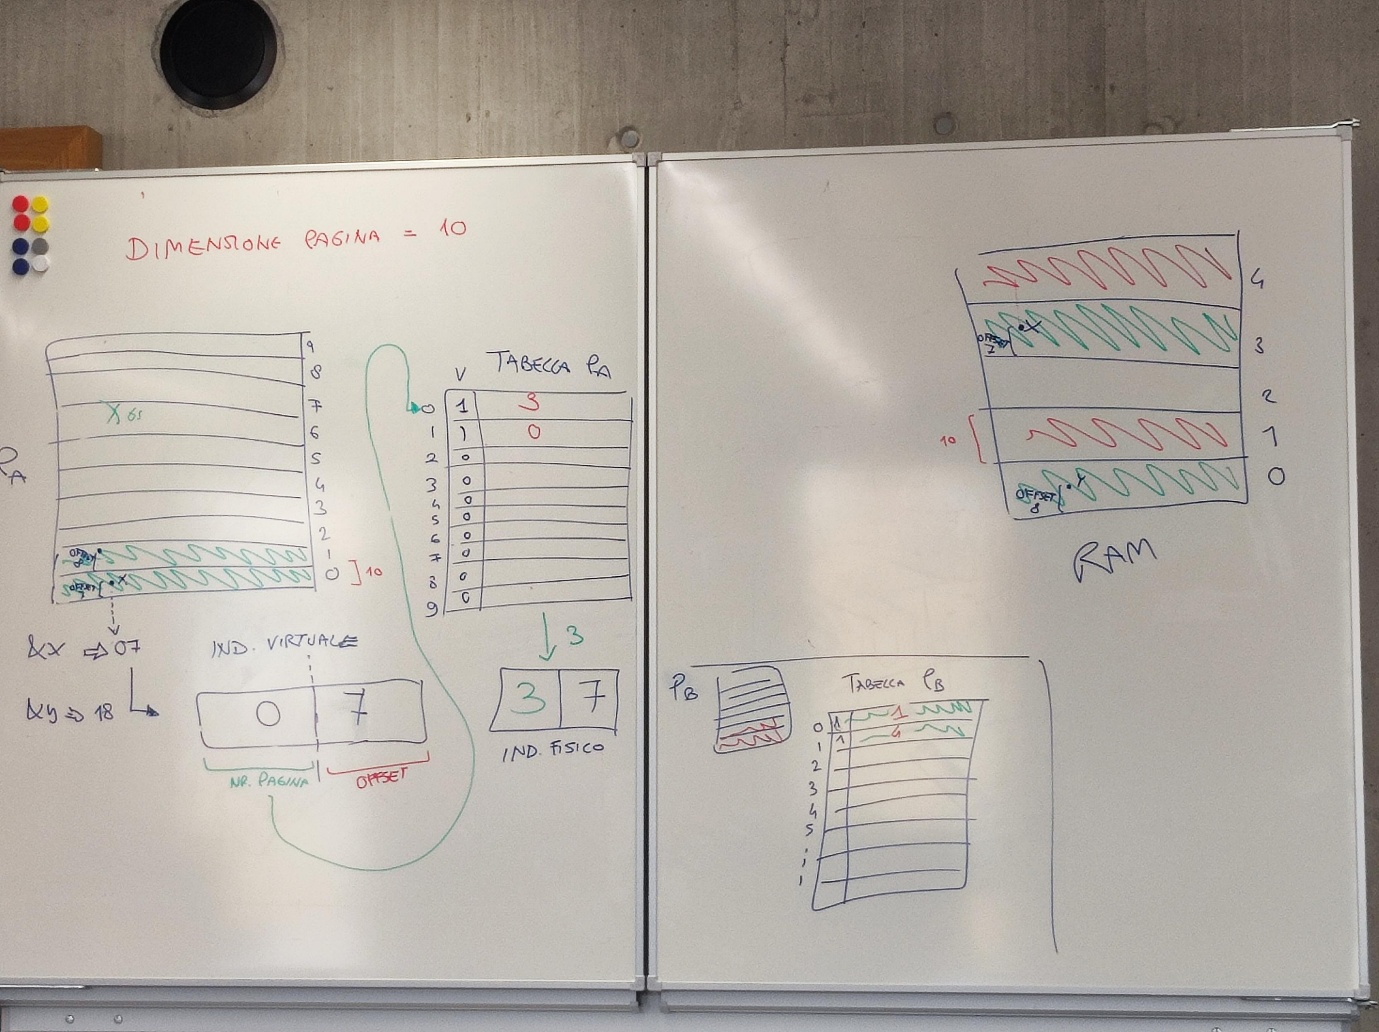 DIMENSIONE PAGINA = 10
PA
9
8
7
6
5
4
3
2
1
0
10
X 65
X
&X ⇒ 07
&y ⇒ 18
IND. VIRTUALE
0 7
NR. PAGINA OFFSET
V TABELLA PA
0 1 3
1 1 0
2 0
3 0
4 0
5 0
6 0
7 0
8 0
9 0
3
3 7
IND. FISICO
4
X
OFFSET
7
3
2
10
1
Y
OFFSET
8
0
RAM
PB
TABELLA PB
0 1 1
1 1 4
2
3
4
5